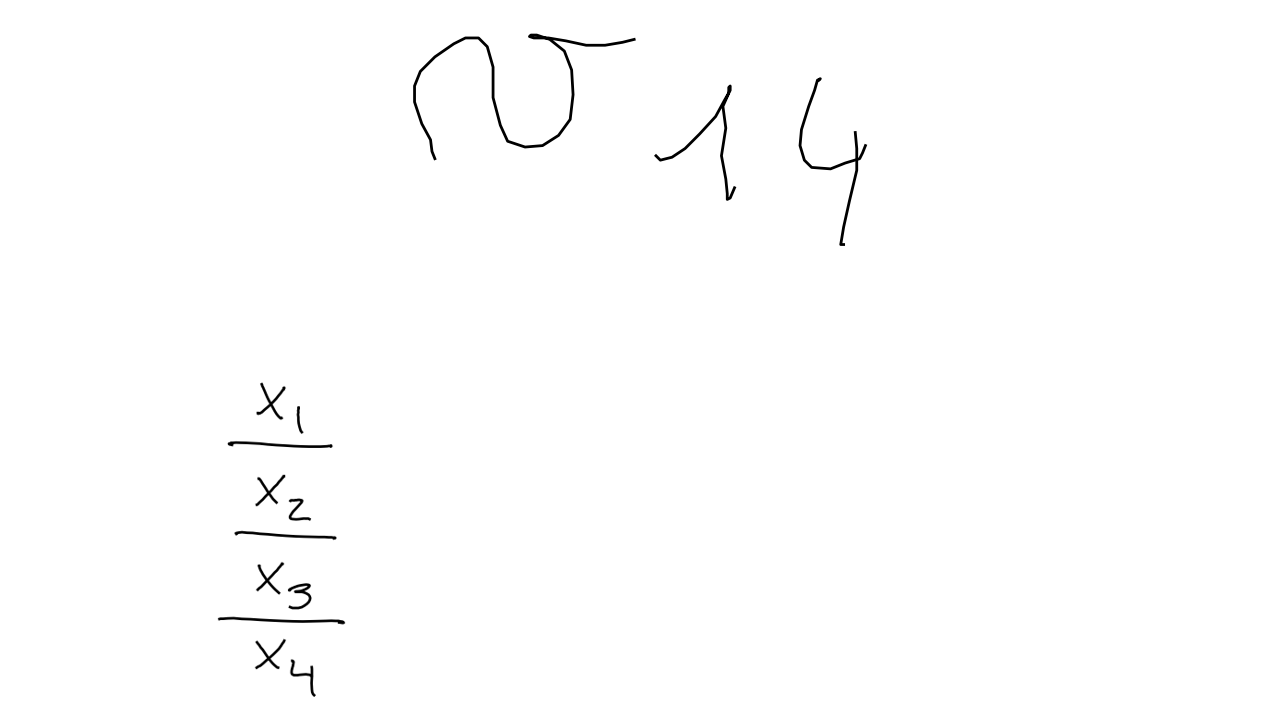 14
x₁
x₂
x₃
x₄